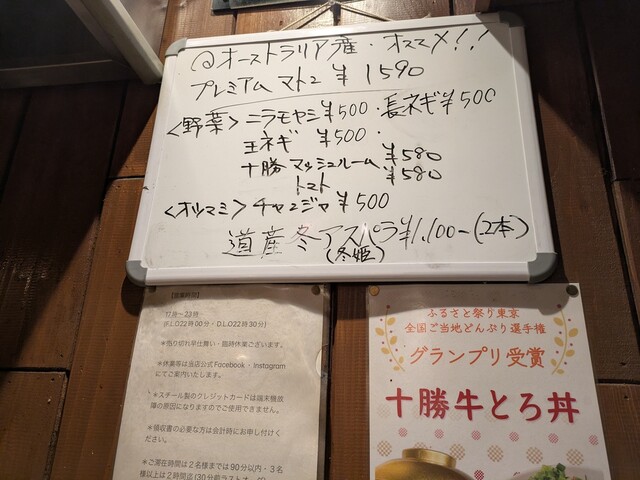 @オーストラリア産・オススメ!!
プレミアム マトン ¥1590
<野菜> ニラモヤシ¥500・長ネギ¥500
玉ネギ ¥500・
十勝マッシュルーム ¥580
トマト ¥580
<オツマミ> チャンジャ ¥500
道産冬アスパラ¥1,100-(2本)
(冬姫)
【営業時間】
17時〜23時
※L.O22時00分・D.L.O22時30分)
*売り切れ早仕舞い・臨時休業ございます。
*休業等は当店公式Facebook・Instagram
にてご案内いたします。
*スチール製のクレジットカードは端末機故
障の原因になりますのでご使用できません。
*領収書の必要な方は会計時にお申し付けく
ださい。
*ご滞在時間は2名様までは90分以内・3名
様以上は2時間迄(30分前ラストオーダー
ふるさと祭り東京
全国ご当地どんぶり選手権
グランプリ受賞
十勝牛とろ丼